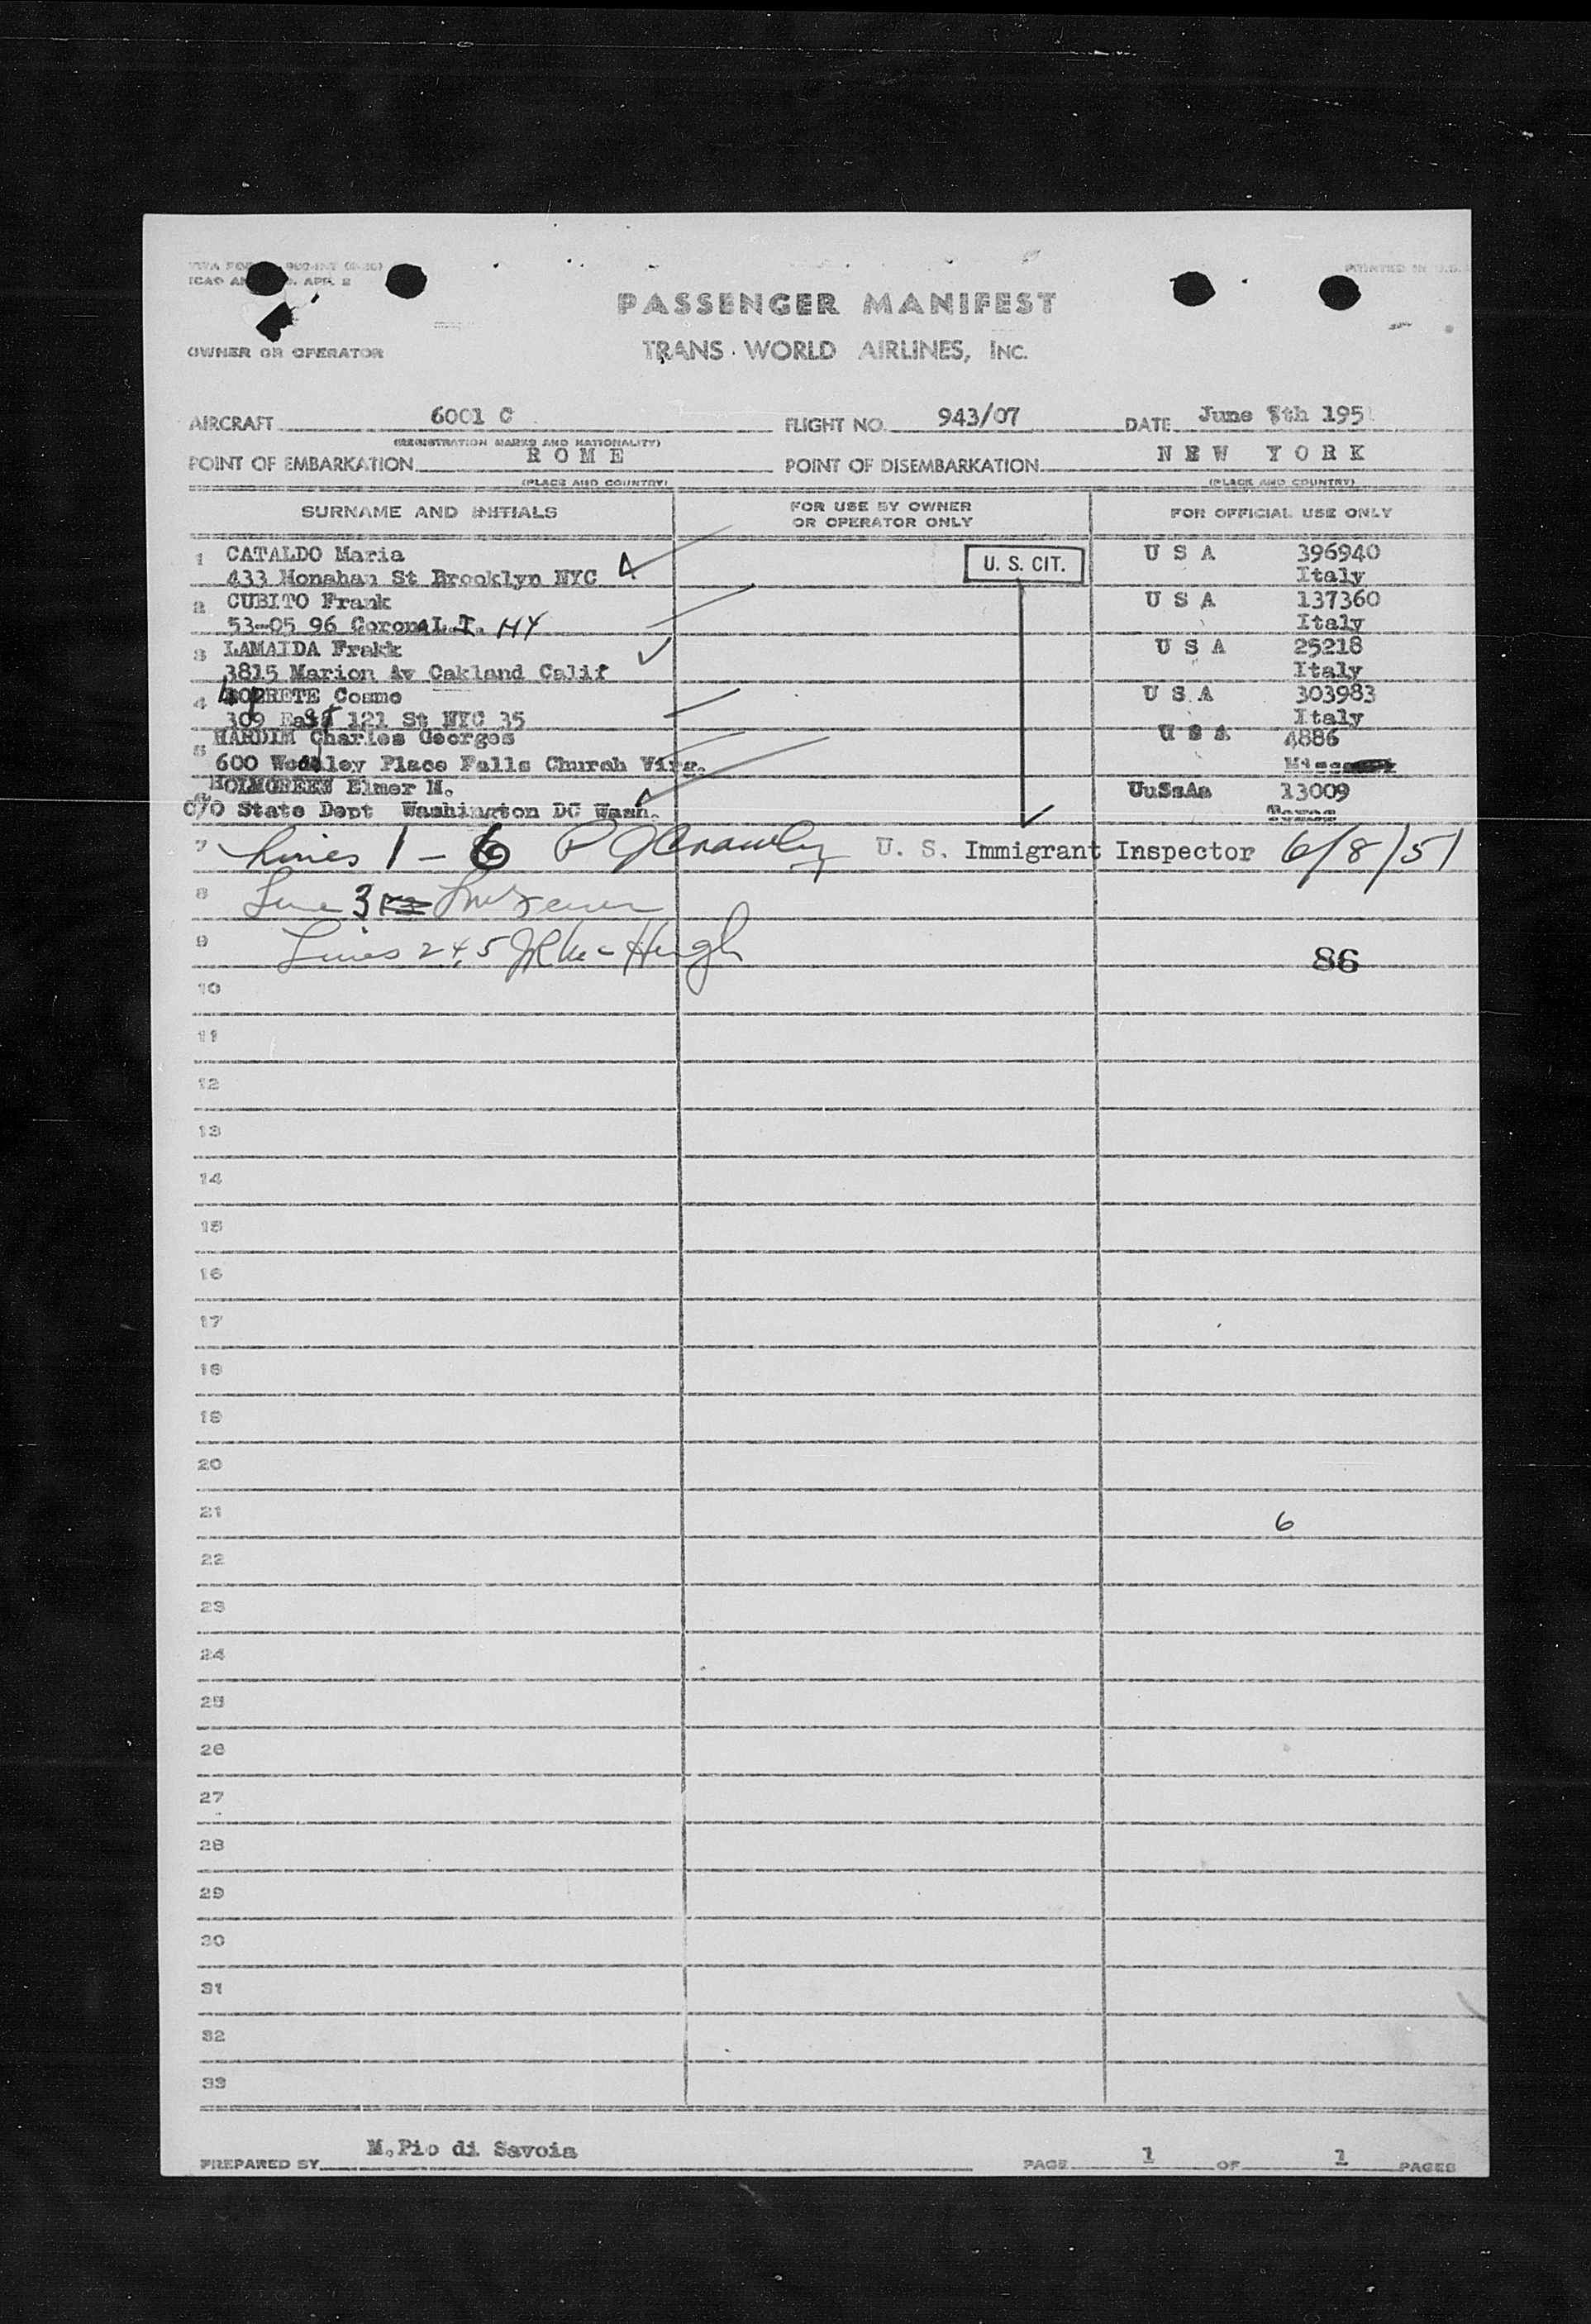 PRINTED IN U.S.
ICAO APR. 2
PASSENGER MANIFEST
OWNER OR OPERATOR TRANS WORLD AIRLINES, INC.
AIRCRAFT 6001 C FLIGHT NO. 943/07 DATE June 7th 195
(REGISTRATION MARKS AND NATIONALITY)
POINT OF EMBARKATION ROME POINT OF DISEMBARKATION NEW YORK
(PLACE AND COUNTRY) (PLACE AND COUNTRY)
SURNAME AND INITIALS FOR USE BY OWNER OR OPERATOR ONLY FOR OFFICIAL USE ONLY
1 CATALDO Maria U S A 396940
433 Monahan St Brooklyn NYC U. S. CIT. Italy
2 CUBITO Frank U S A 137360
53-05 96 Corona L.I. NY Italy
3 LAMAIDA Frakk U S A 25218
3815 Marion Av Oakland Calif Italy
4 LOPRETE Cosmo U S A 303983
309 East 121 St NYC 35 Italy
5 HARDIM Charles Georges U S A 4886
600 Place Falls Church Virg.
6 HOLMGREEN Elmer N. UuSsAa 13009
C/O State Dept Washington DC Wash. Texas
7 Lines 1 - 6 P J Crawley U. S. Immigrant Inspector 6/8/51
8 Line 3
9 Lines 2 4, 5 J R McHugh 86
10
11
12
13
14
15
16
17
18
19
20
21 6
22
23
24
25
26
27
28
29
30
31
32
33
PREPARED BY M.Pio di Savoia PAGE 1 OF 1 PAGES